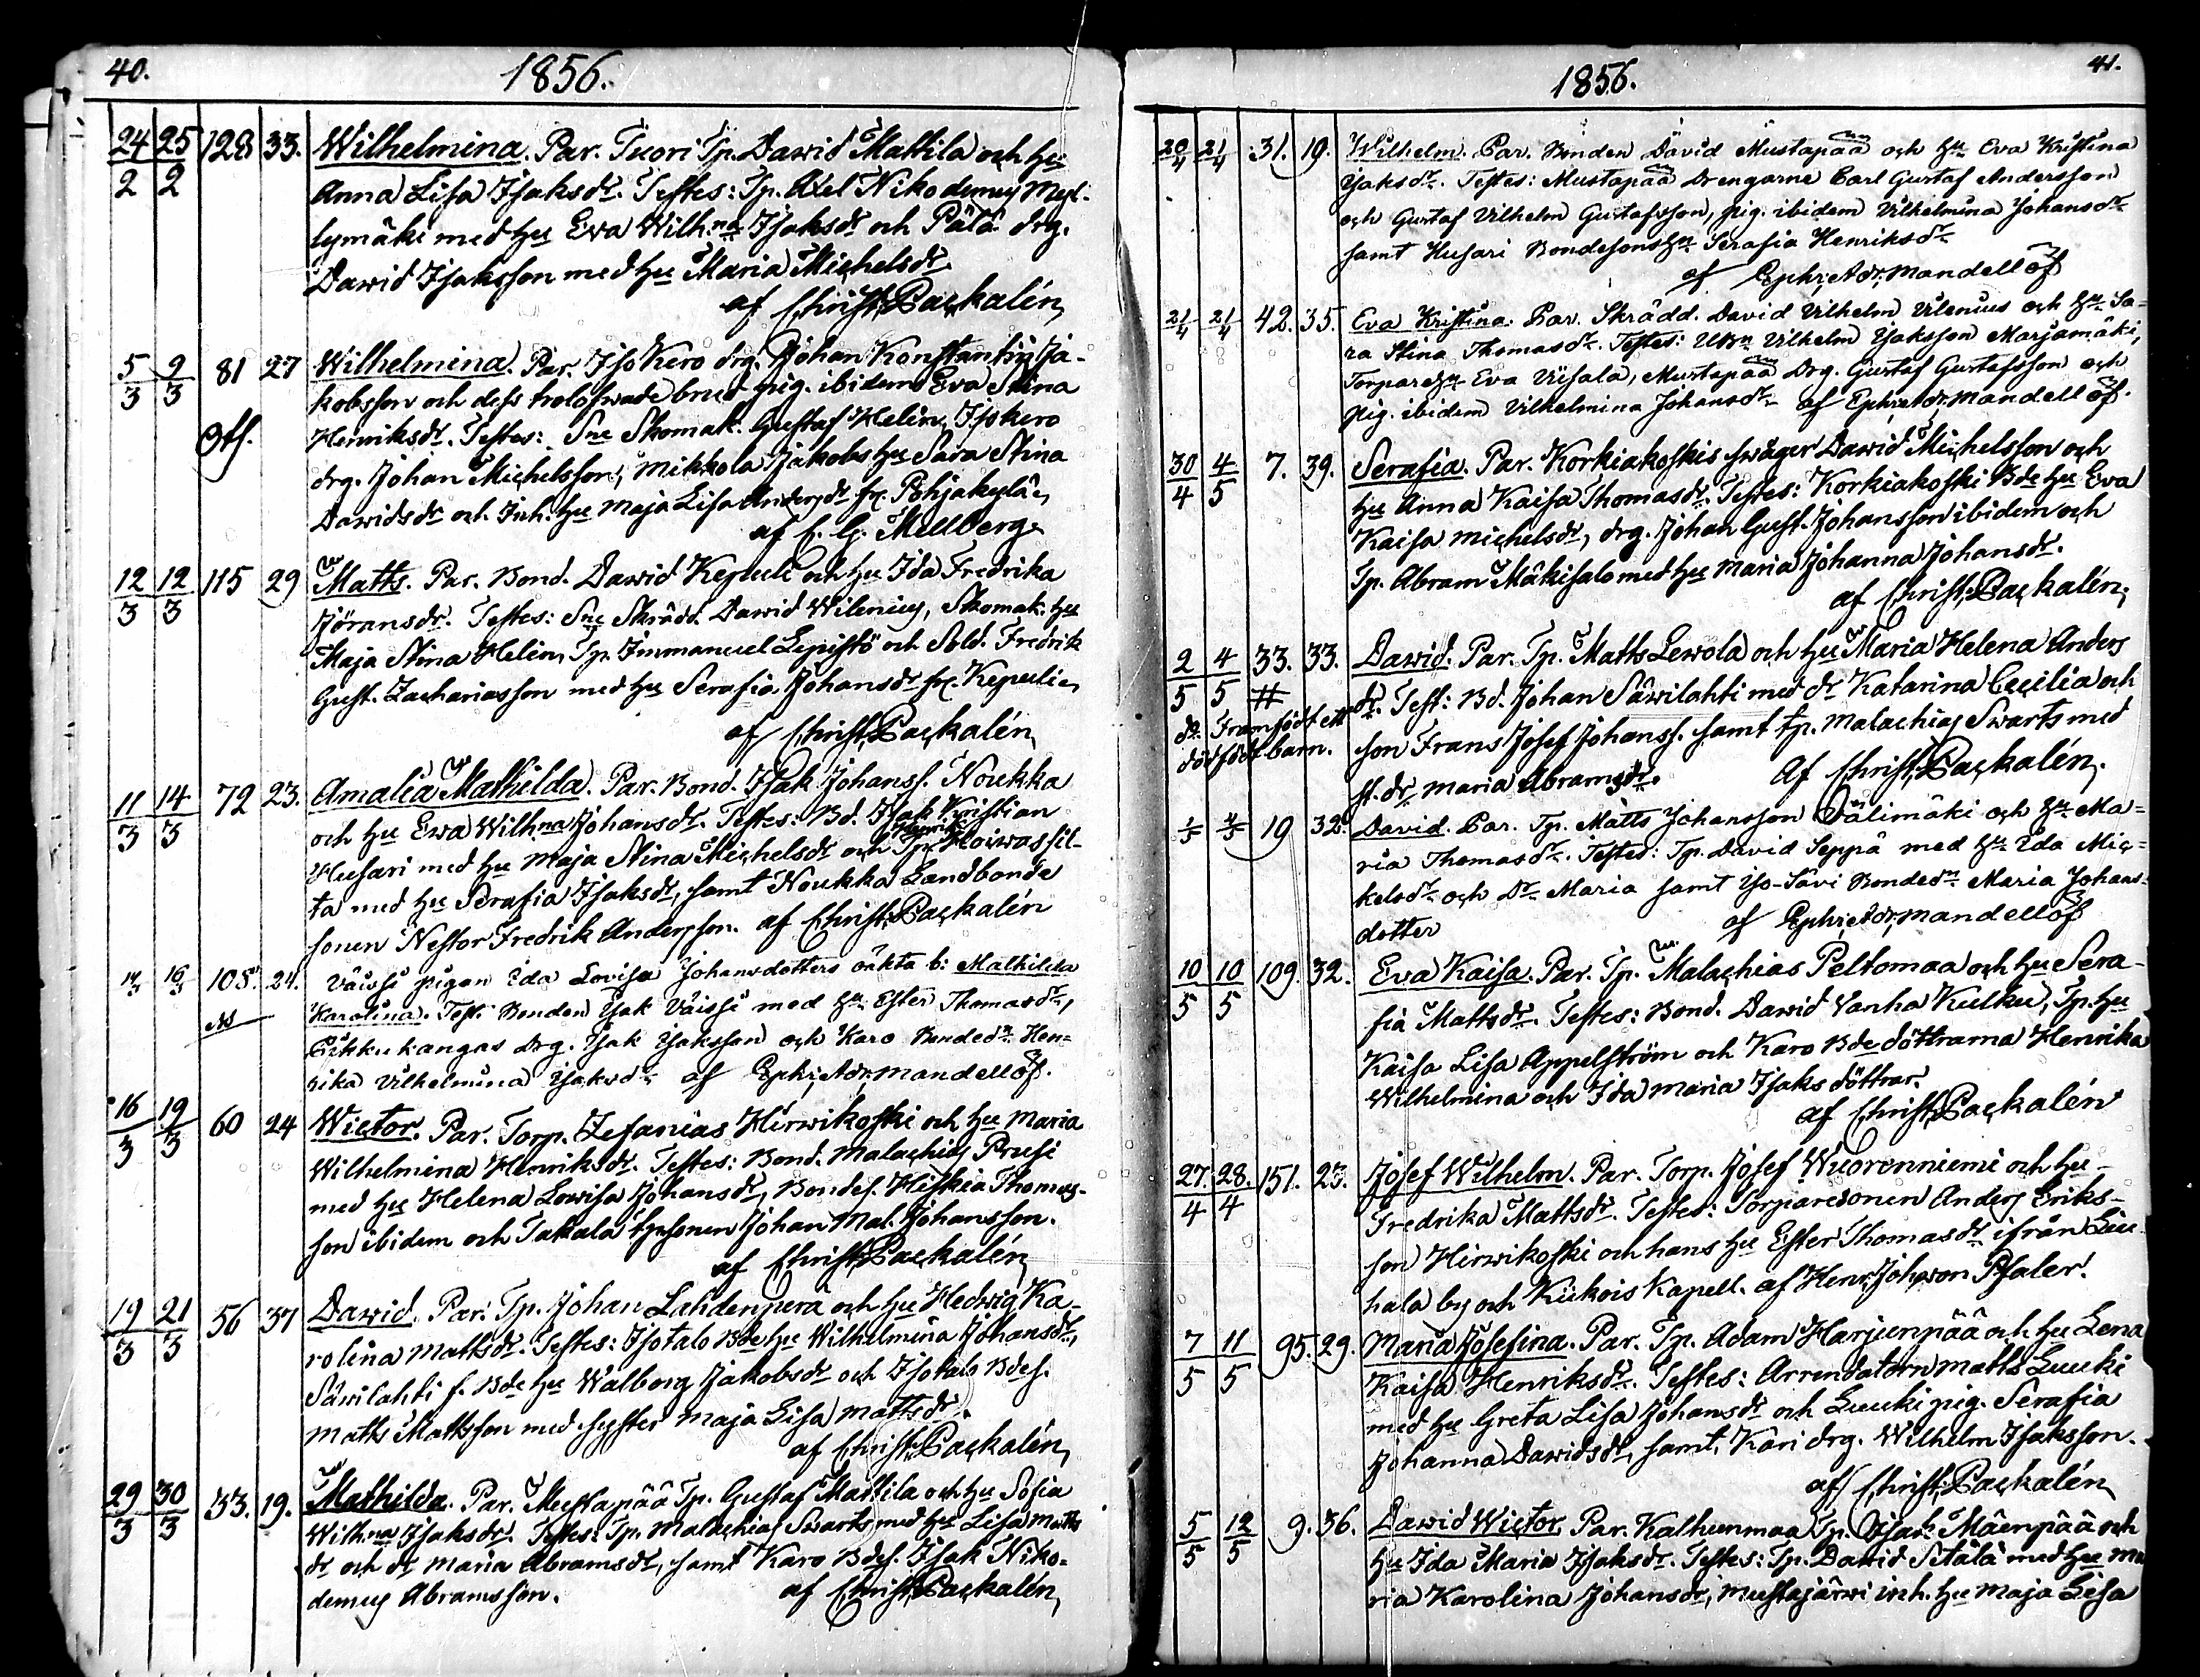 40.
1856.
24/2 25/2 128 33. Wilhelmina. Par. Tuori Tp. Dawid Mattila och hu
Anna Lisa Isaksdr. Testes: Tp. Axel Nikodemus Myl-
lymäki med hu Eva Wilh:na Isaksdr och Pälä drg.
Dawid Isaksson med hu Maria Michelsdr
af Christ. Packalén
5/3 9/3 81 27 Wilhelmina. Par. Iso Kero drg. Johan Konstantin Ja-
kobsson och dess trolofwade brud pig. ibidem Eva Stina
Henriksdr. Testes: Sne Skomak. Gustaf Helén, Isokero
drg. Johan Michelsson, Mikkola Jakobs hu Sara Stina
Dawidsdr och Inh. hu Maja Lisa Andersdr fr. Pohjakylä
af C. G. Mellberg
12/3 12/3 115 29 Matts. Par. Bond. Dawid Kepuli och hu Ida Fredrika
Jöransdr. Testes: Sne Skrädd. Dawid Wilenius, Skomak. hu
Maja Stina Helén, Tp. Immanuel Lepistö och Sold. Fredrik
Gust. Zachariasson med hu Serafia Johansdr fr. Kepuli
af Christ. Packalén
11/3 14/3 72 23. Amalia Mathilda. Par. Bond. Isak Johanss. Noukka
och hu Ewa Wilhna Johansdr. Testes: Bd. Isak Kristian
Husari med hu Maja Stina Michelsdr och Tp. Henrik Koiwassil-
ta med hu Serafia Isaksdr, samt Noukka Landbonde
sonen Nestor Fredrik Andersson. af Christ. Packalén
14/3 16/3 108. 24. Väissi pigan Ida Lovisa Johansdotters oäkta b: Mathilda
Karolina. Test. Bonden Isak Väissi med hu Ester Thomasdr,
Pikkukangas Drg. Isak Isaksson och Karo Bondedr Hen-
rika Vilhelmina Isaksdr af Ephr. Adr. Mandellöf.
16/3 19/3 60 24 Wictor. Par. Torp. Zefanias Hirwikoski och hu Maria
Wilhelmina Henriksdr. Testes: Bond. Malachias Prusi
med hu Helena Lowisa Johansdr, Bondes. Hiskia Thomas-
son ibidem och Takala tpsonen Johan Mal. Johansson.
af Christ. Packalén
19/3 21/3 56 37 Dawid. Par. Tp. Johan Lahdenperä och hu Hedwig Ka-
rolina Mattsdr. Testes: Isotalo Bde hu Wilhelmina Johansdr,
Säwilahti f. Bde hu Walborg Jakobsdr och Isotalo Bdes.
Matts Mattsson med syster Maja Lisa Mattsdr.
af Christ. Packalén
29/3 30/3 33. 19. Mathilda. Par. Mustapää Tp. Gustaf Mattila och hu Sofia
Wilh:na Isaksdr. Testes: Tp. Malachias Swarts med hu Lisa Matts
dr och dr Maria Abramsdr, samt Karo Bdes. Isak Niko-
demus Abramsson. af Christ. Packalén
41.
1856.
20/4 21/4 31. 19. Wilhelm. Par. Bonden David Mustapää och hu Eva Kristina
Isaksdr. Testes: Mustapää Drengarne Carl Gustaf Andersson
och Gustaf Vilhelm Gustafsson, pig. ibidem Vilhelmina Johansdr
samt Husari Bondesons hu Serafia Henriksdr
af Ephr. Adr. Mandellöf
21/4 21/4 42. 35. Eva Kristina. Par. Skrädd. David Vilhelm Vilenius och hu Sa-
ra Stina Thomasdr. Testes: Vilhelm Isaksson Marjamäki,
Torpare hu Eva Uusala, Mustapää Drg. Gustaf Gustafsson och
pig. ibidem Vilhelmina Johansdr af Ephr. Adr. Mandellöf.
30/4 4/5 7. 39. Serafia. Par. Korkiakoskis swåger Dawid Michelsson och
hu Anna Kaisa Thomasdr. Testes: Korkiakoski Bde hu Eva
Kaisa Michelsdr, drg. Johan Gust. Johansson ibidem och
Tp. Abram Mäkisalo med hu Maria Johanna Johansdr.
af Christ. Packalén
2/5 4/5 33. 33. Dawid. Par. Tp. Matts Lewola och hu Maria Helena Anders
dr. Test: Bd. Johan Säwilahti med dr Katarina Cecilia och
do Framfödt ett dödfödt barn.
son Frans Josef Johanss. samt tp. Malachias Swarts med
st. dr. Maria Abramsdr. Af Christ. Packalén.
1/5 4/5 19 32. David. Par. Tp. Matts Johansson Välimäki och hu Ma-
ria Thomasdr. Testes: Tp. David Seppä med hu Ida Mic-
kelsdr och Dr Maria samt Iso-Sävi Bondedr Maria Johans-
dotter af Ephr. Adr. Mandellöf
10/5 10/5 109. 32. Eva Kaisa. Par. Tp. Malachias Peltomaa och hu Sera-
fia Mattsdr. Testes: Bond. Dawid Vanha Kulku, Tp. hu
Kaisa Lisa Appelström och Karo Bde döttrarna Henrika
Wilhelmina och Ida Maria Isaks döttrar.
af Christ. Packalén
27./4 28./4 151. 23. Josef Wilhelm. Par. Torp. Josef Wuorenniemi och hu
Fredrika Mattsdr. Testes: Torparesonen Anders Eriks-
son Hirwikoski och hans hu Ester Thomasdr ifrån Luu-
hala by och Kiikois Kapell. af Henr. Joh. von Pfaler.
7/5 11/5 95. 29. Maria Josefina. Par. Tp. Adam Harjunpää och hu Lena
Kaisa Henriksdr. Testes: Arrendatorn Matts Luuki
med hu Greta Lisa Johansdr och Luuki pig. Serafia
Johanna Dawidsdr, samt Kari drg. Wilhelm Isaksson.
af Christ. Packalén
5/5 12/5 9. 36. Dawid Wictor. Par. Kalhunmaa Tp. Isak Mäenpää och
hu Ida Maria Isaksdr. Testes: Tp. Dawid Setälä med hu Ma
ria Karolina Johansdr, Mustajärwi inh. hu Maja Lisa